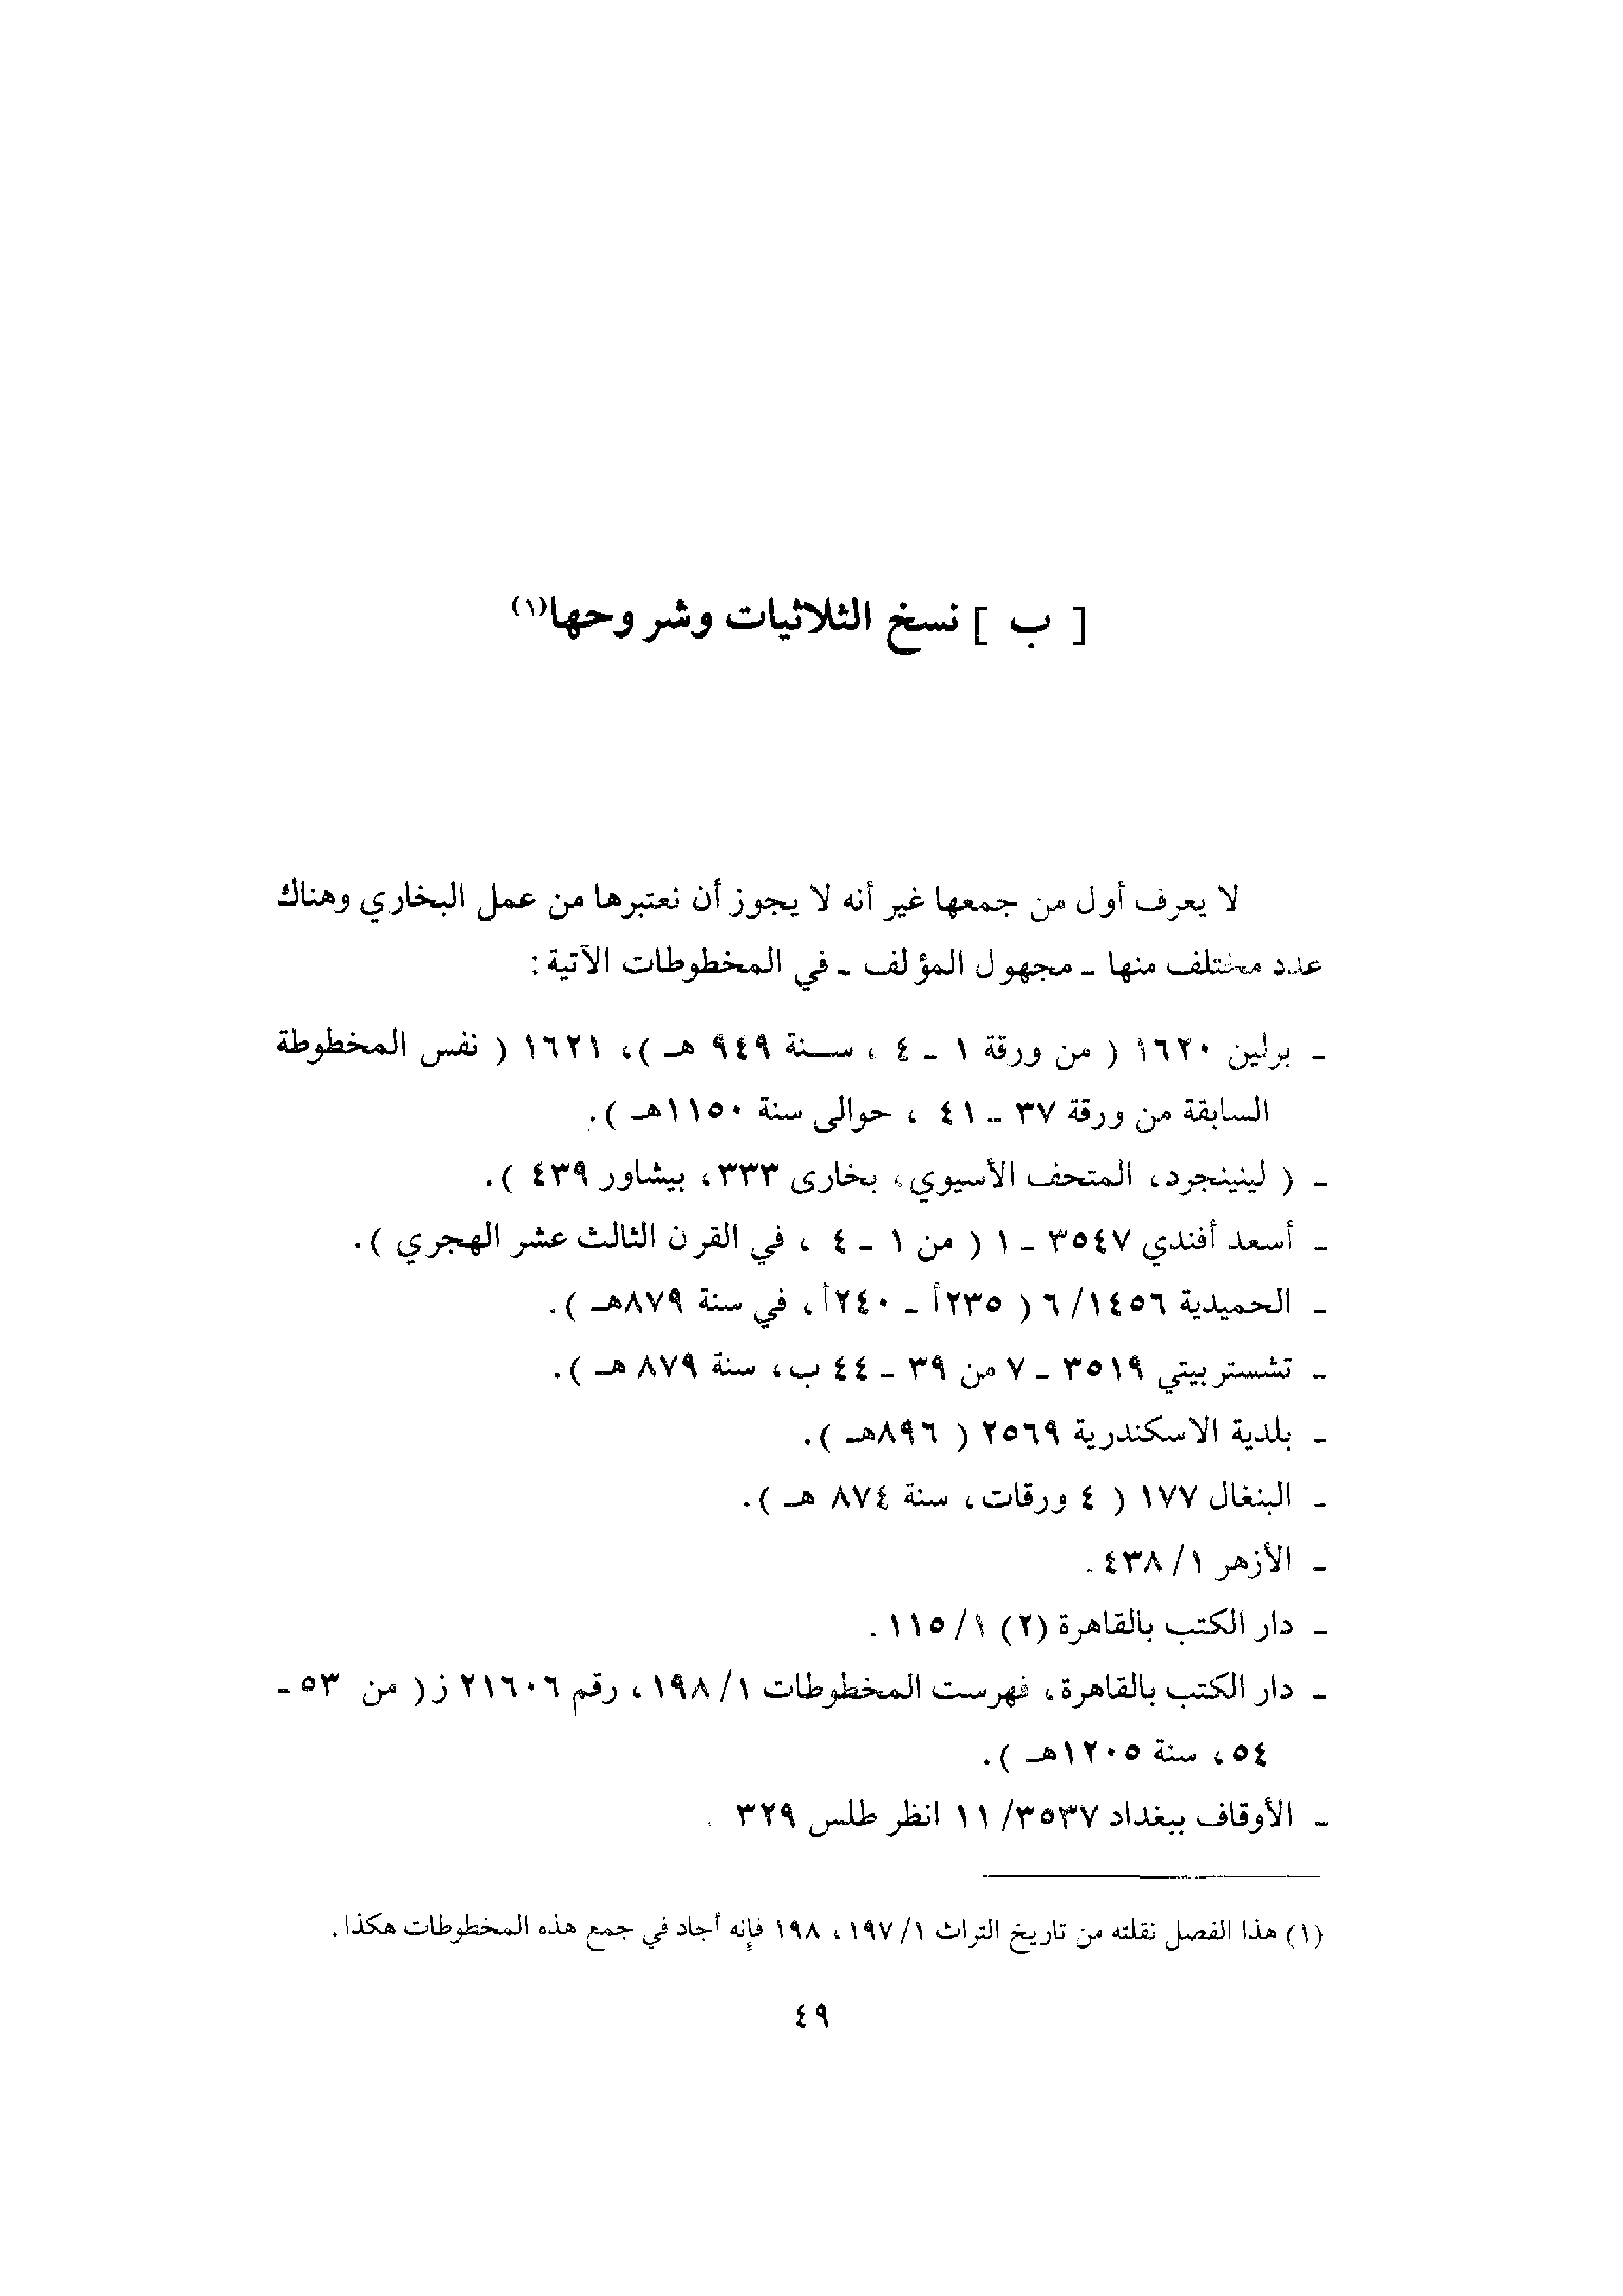 [ ب ] نسخ الثلاثيات وشروحها(١)
لا يعرف أول من جمعها غير أنه لا يجوز أن نعتبرها من عمل البخاري وهناك
عدد مختلف منها ـ مجهول المؤلف ـ في المخطوطات الآتية:
ـ برلين ١٦٢٠ ( من ورقة ١ ـ ٤ ، سنة ٩٤٩ هـ )، ١٦٢١ ( نفس المخطوطة
السابقة من ورقة ٣٧ ـ ٤١ ، حوالى سنة ١١٥٠هـ ).
ـ ( لينينجرد، المتحف الأسيوي، بخارى ٣٣٣، بيشاور ٤٣٩ ).
ـ أسعد أفندي ٣٥٤٧ ـ ١ ( من ١ ـ ٤ ، في القرن الثالث عشر الهجري ).
ـ الحميدية ١٤٥٦/ ٦ ( ٢٣٥أ ـ ٢٤٠أ، في سنة ٨٧٩هـ ).
ـ تشستربيتي ٣٥١٩ ـ ٧ من ٣٩ ـ ٤٤ ب، سنة ٨٧٩ هـ ).
ـ بلدية الاسكندرية ٢٥٦٩ ( ٨٩٦هـ ).
ـ البنغال ١٧٧ ( ٤ ورقات، سنة ٨٧٤ هـ ).
ـ الأزهر ١/ ٤٣٨ .
ـ دار الكتب بالقاهرة (٢) ١/ ١١٥ .
ـ دار الكتب بالقاهرة، فهرست المخطوطات ١/ ١٩٨، رقم ٢١٦٠٦ ز( من ٥٣ ـ
٥٤، سنة ١٢٠٥هـ ).
ـ الأوقاف ببغداد ٣٥٣٧/ ١١ انظر طلس ٣٢٩ .
(١) هذا الفصل نقلته من تاريخ التراث ١/ ١٩٧، ١٩٨ فإنه أجاد في جمع هذه المخطوطات هكذا .
٤٩